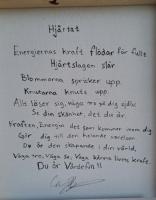 Hjärtat
Energiernas kraft flödar för fullt
Hjärtslagen slår
Blommorna spricker upp.
Knutarna knuts upp.
Alla löser sig, våga tro på dig själv.
Se din skönhet, det du är
Kraften, Energin det som kommer inom dig
Gör dig till den helande varelsen
Du är den skapande i din värld.
Våga tro, Våga se, Våga känna livets kraft.
Du är Värdefull!